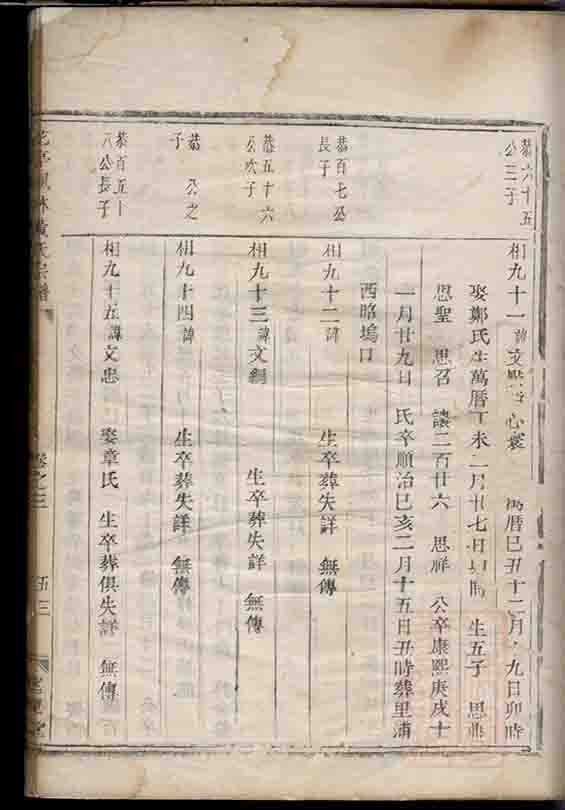 恭六十五
公三子
相九十一 諱文 心寰 萬曆己丑十二月 九日卯時
娶鄭氏生萬曆丁未二月廿七日 時 生五子 思
思聖 思召 讓二百廿六 思祥 公卒康熙庚戌十
一月廿九日 氏卒順治己亥二月十五日丑時葬里浦
西昭塢口
恭百七公
長子
相九十二諱 生卒葬失詳 無傳
恭五十六
公次子
相九十三諱文綱 生卒葬失詳 無傳
恭 公之
子
相九十四諱 生卒葬失詳 無傳
恭百五十
八公長子
相九十五諱文忠 娶章氏 生卒葬俱失詳 無傳
林黄氏宗譜 卷之三 五三